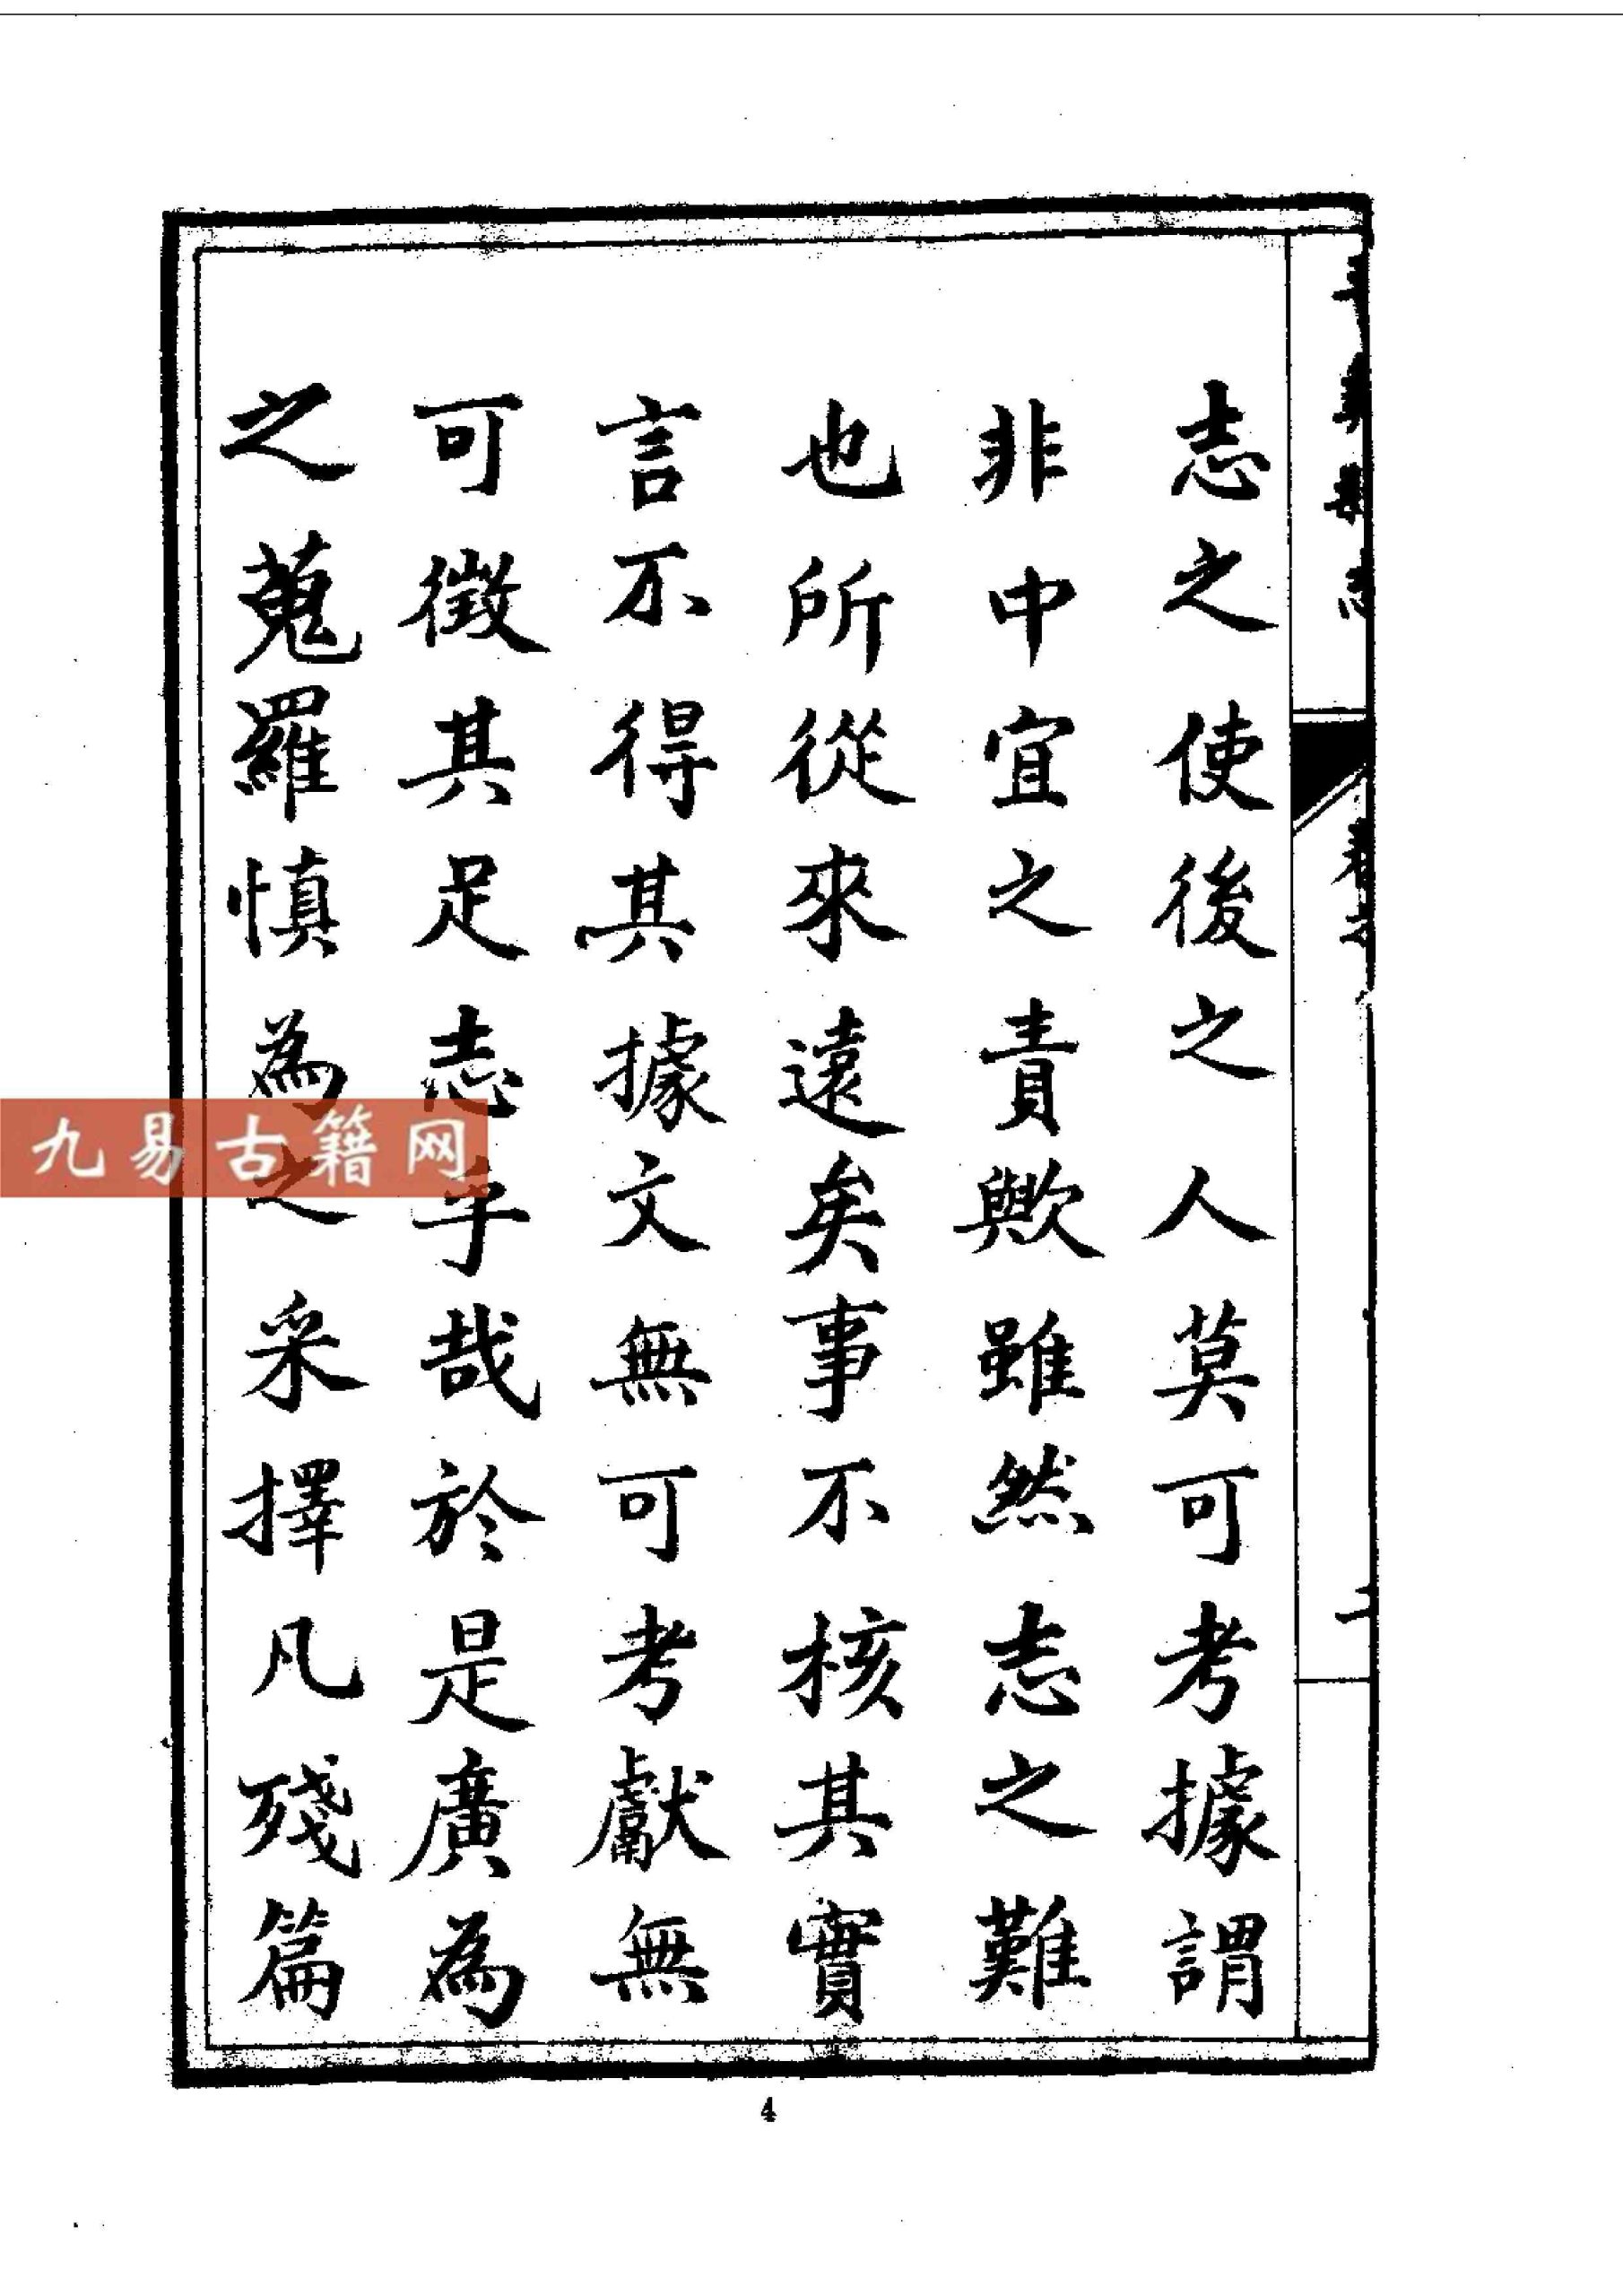 志之使後之人莫可考據謂
非中宜之責歟雖然志之難
也所從來遠矣事不核其實
言不得其據文無可考獻無
可徵其足志乎哉於是廣為
之蒐羅慎為之采擇凡殘篇
二
九易古籍网
4